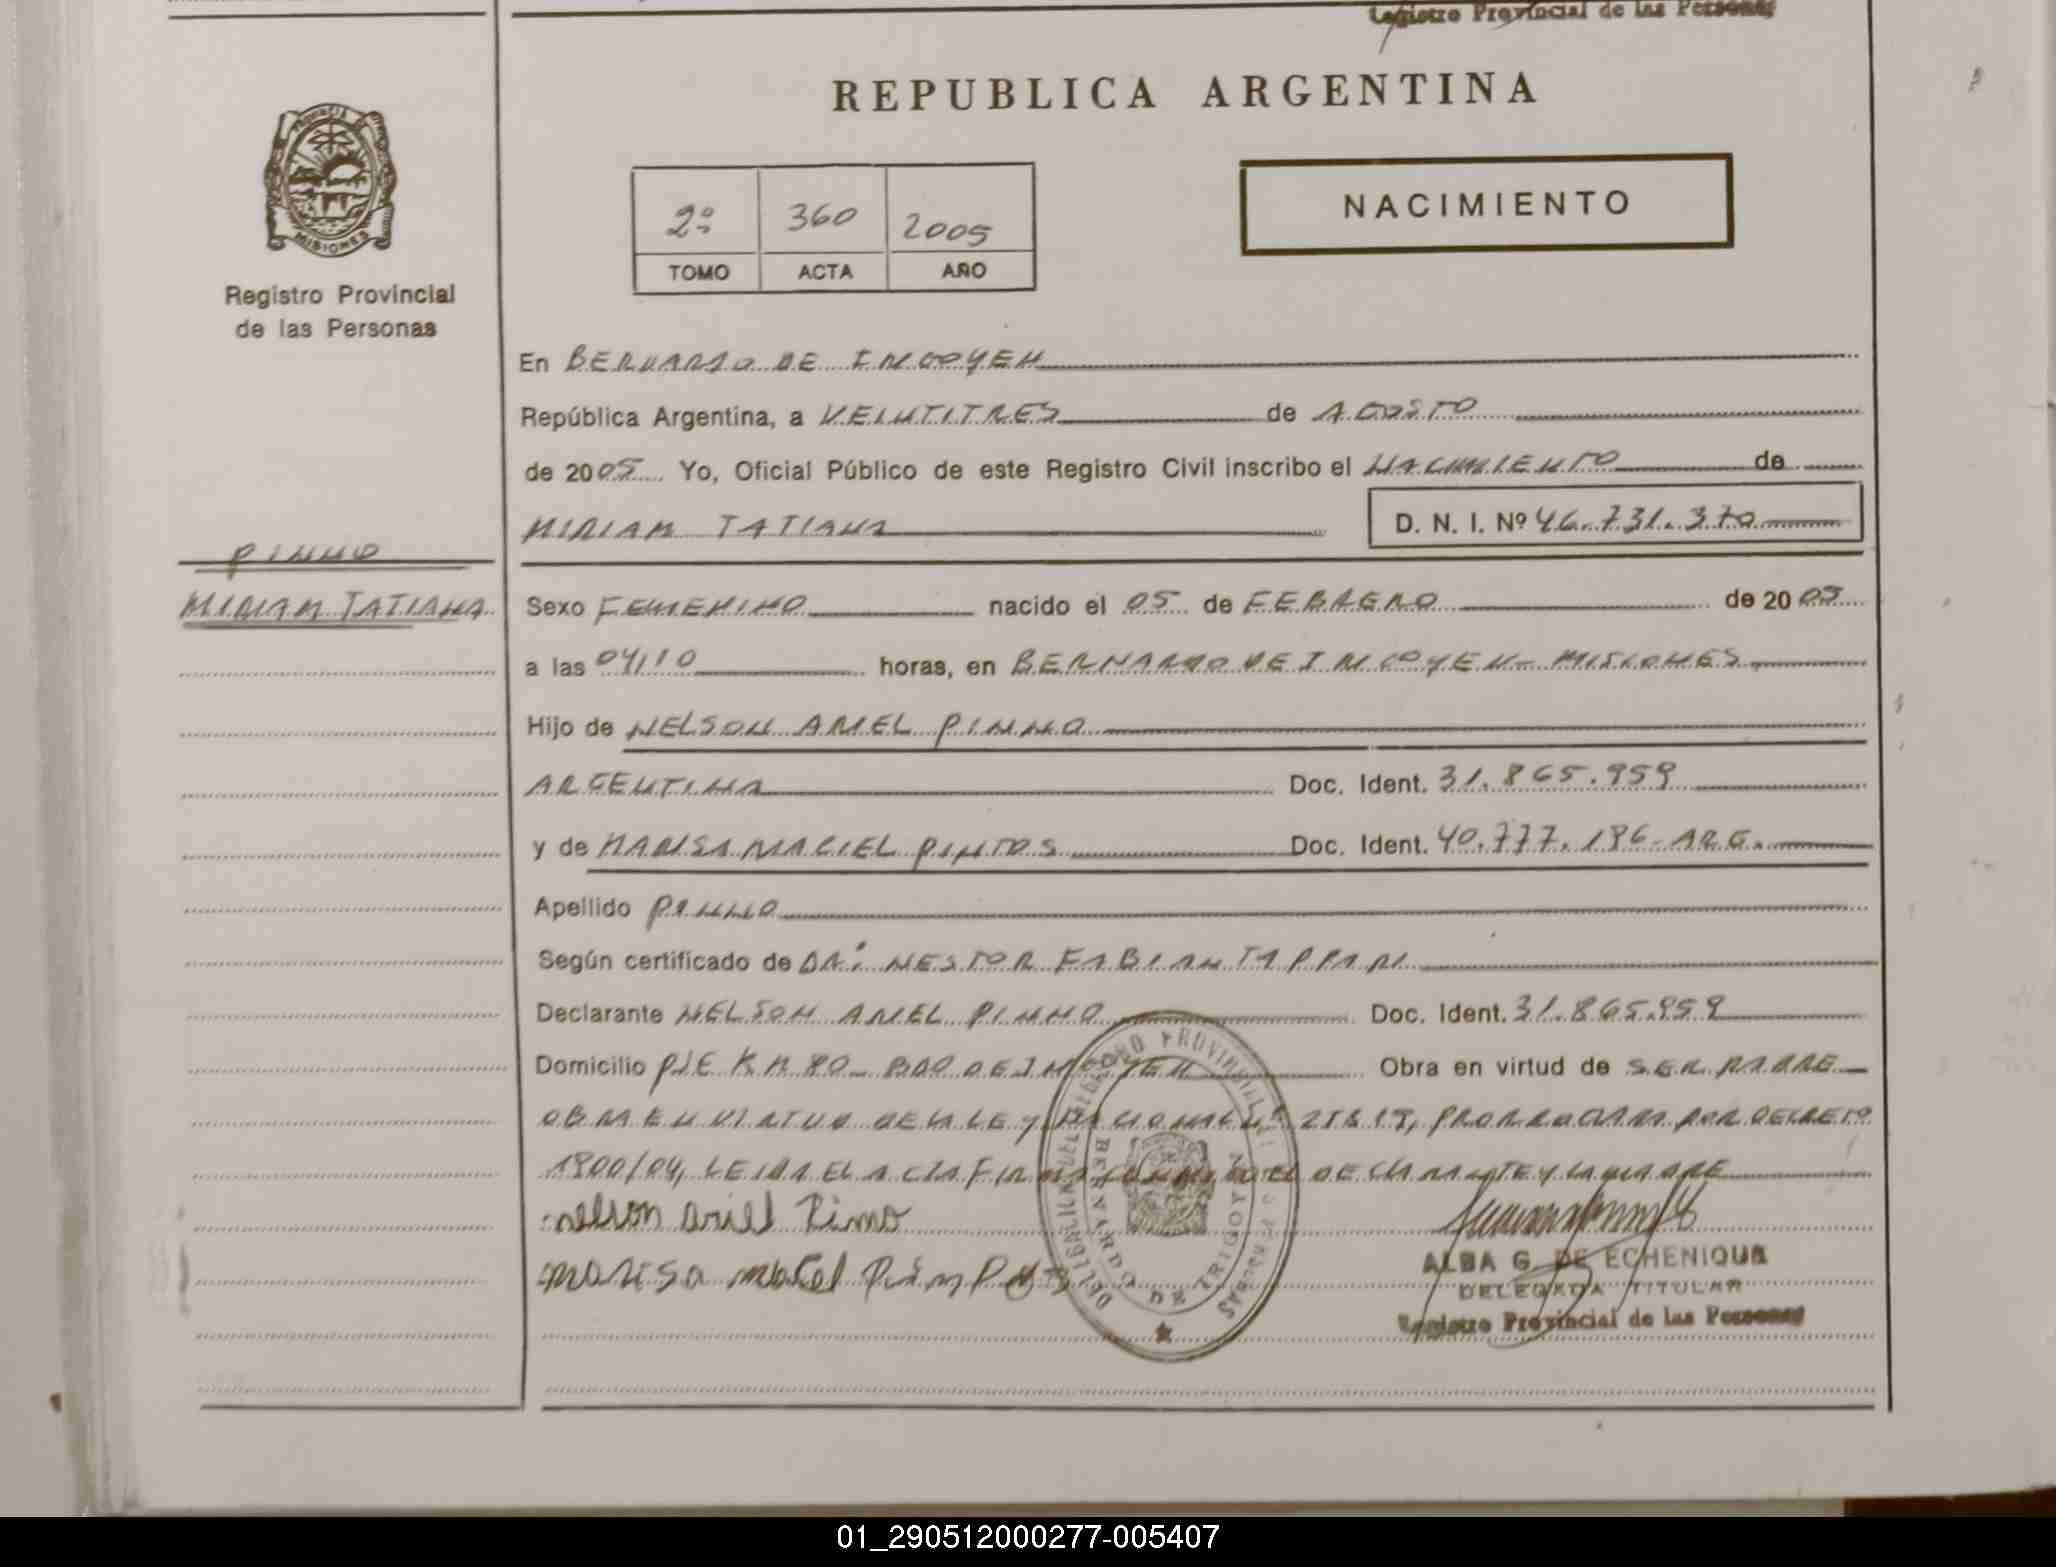 Registro Provincial de las Personas
REPUBLICA ARGENTINA
PROVINCIA DE MISIONES
Registro Provincial
de las Personas
2º 360 2005
TOMO ACTA AÑO
NACIMIENTO
En BERNARDO DE IRIGOYEN
República Argentina, a VEINTITRES de AGOSTO
de 2005 Yo, Oficial Público de este Registro Civil inscribo el NACIMIENTO de
MIRIAM TATIANA D. N. I. Nº 46.731.370
PINNO
MIRIAM TATIANA
Sexo FEMENINO nacido el 05 de FEBRERO de 2005
a las 04,10 horas, en BERNARDO DE IRIGOYEN - MISIONES
Hijo de NELSON ARIEL PINNO
ARGENTINA Doc. Ident. 31.865.959
y de MARISA MACIEL PINTOS Doc. Ident. 40.777.196 - ARG.
Apellido PINNO
Según certificado de DR: NESTOR FABIAN TAPPARI
Declarante NELSON ARIEL PINNO Doc. Ident. 31.865.959
Domicilio PJE KM 80 - BDO DE IRIGOYEN Obra en virtud de SER PADRE
OBRA EN VIRTUD DE LA LEY NACIONAL Nº 25819, PRORROGADA POR DECRETO
1900/04, LEIDA EL ACTA FIRMAN CONMIGO EL DECLARANTE Y LA MADRE
nelson ariel Pinno
marisa maciel Pintos
DELEGACION DEL REGISTRO PROVINCIAL DE LAS PERSONAS
BERNARDO DE IRIGOYEN
ALBA G. DE ECHENIQUE
DELEGADA TITULAR
Registro Provincial de las Personas
01_290512000277-005407